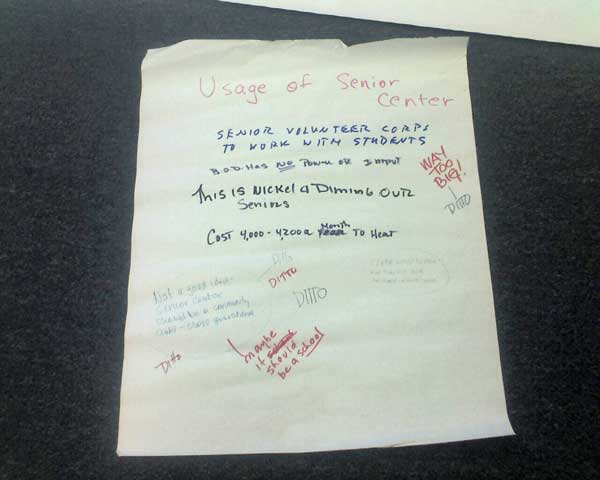 Usage of Senior
Center
SENIOR VOLUNTEER CORPS
TO WORK WITH STUDENTS
B.O.D. HAS NO POWER OR INPUT
WAY
TOO
BIG!
DITTO
THIS IS NICKEL & DIMING OUR
SENIORS
COST 4,000 - 4,200 a Month TO HEAT
Ditto
DITTO
DITTO
Not a good idea -
Senior Center
should be a community
Ditto
maybe
it should
be a school